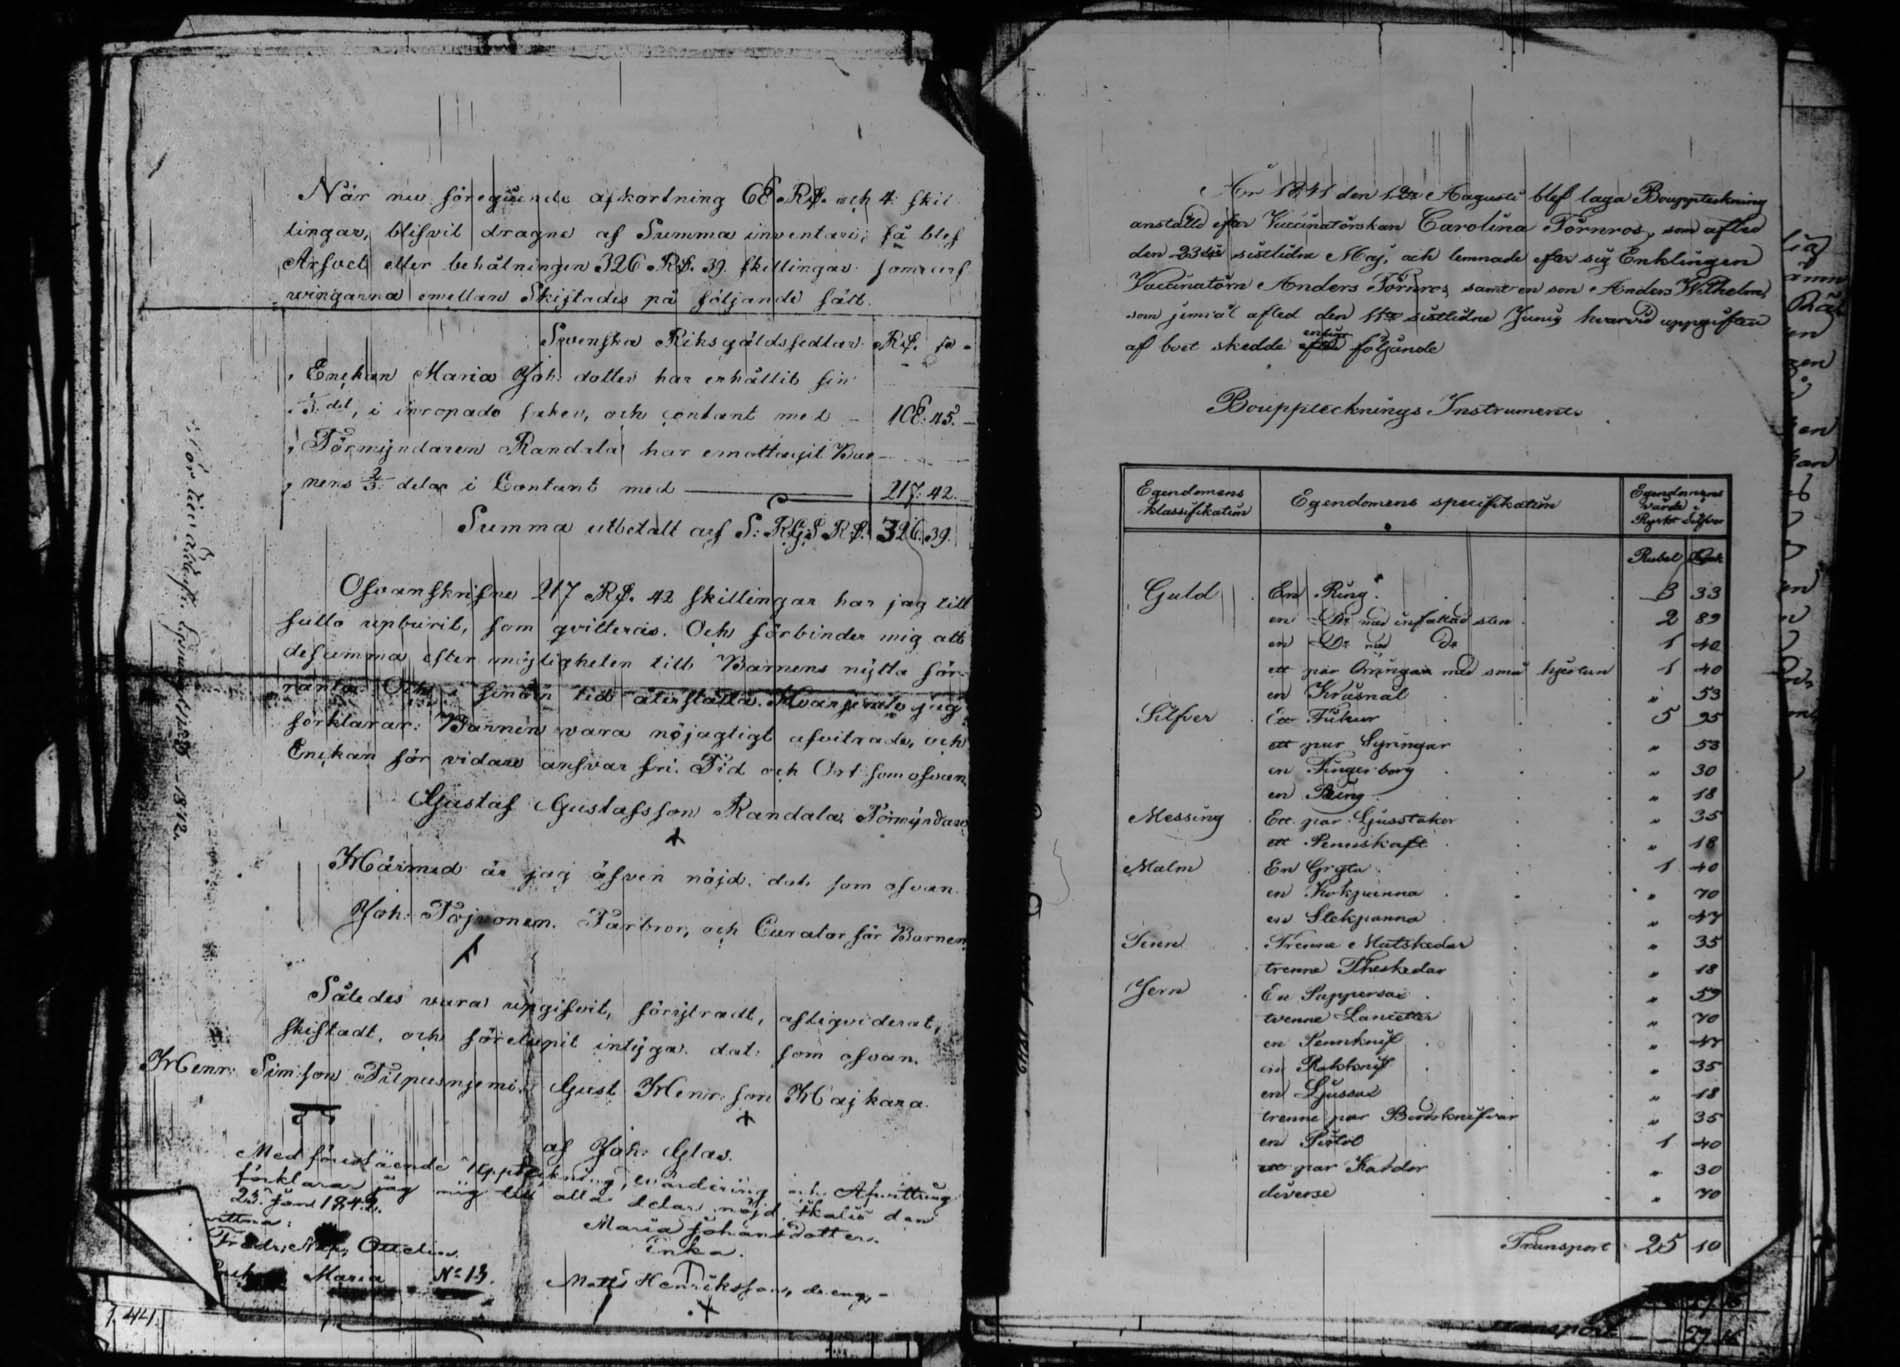 När nu föregående afkortning 68 Rd. och 4 skil
lingar, blifvit dragne af Summa inventarii, så blef
Arfvet eller behålningen 326 Rd. 39. skillingar som arf
vingarna emellan Skiftades på följande sätt.
Svenska Riksgäldssedlar Rd.
Enckan Maria Joh: dotter har erhållit sin
1/3 del, i inropade saker, och contant med 108. 45.
Förmyndaren Randala har emottagit Bar
nens 2/3 delar i Contant med 217. 42.
Summa utbetalt af S: RGS Rd. 326. 39.
Ofvanskrifne 217 Rd. 42 skillingar har jag till
fullo upburit, som qvitteras. Och förbinder mig att
desamma efter möjligheten till Barnens nytta för
ränta. Och i sinom tid återställa. Hvarjemte jag
förklarar: Barnen vara nöjagtigt afvitrade, och
Enckan för vidare ansvar fri. Tid och Ort som ofvan
Gustaf Gustafsson Randala, Förmyndare
Härmed är jag äfven nöjd. dat: som ofvan
Joh: Farbror, och Curator för Barnen
Således vara upgifvit, försyltradt, afliqviderat,
skiftadt, och förelupit intyga. dat: som ofvan.
Henr: Sim:son Gust. Henr:son Majkara
af Joh: Glas.
Med förestående Uppteckning, evardering och Afvittring
förklarar jag mig till alla delar nöjd
23 Jan 1842.
Maria Johansdotter
Enka.
vittna:
Fredr. Ottelin
Maria No 13.
Matts Henriksson, dreng
1842.
1.441.
År 1841 den 12te Augusti blef laga Bouppteckning
anstäld efter Vaccinatörskan Carolina Törnros, som afled
den 23dje sistlidne Maj, och lemnade efter sig Enklingen
Vaccinatörn Anders Törnros samt en son Anders Wilhelm,
som jemväl afled den 11te sistlidne Junii hvarvid uppgiften
af boet skedde enligt följande
Boupptecknings Instrument.
Egendomens klassifikation Egendomens specifikation Egendomens värde i Ryskt Silfver
Rubel Kopek
Guld En Ring 3 33
en Dito med infattad sten 2 89
en Do med Do 1 40
ett par Örringar med små hjertan 1 40
en Krusnål " 53
Silfver En Fickur 5 95
ett par Syringar " 53
en Fingerborg " 30
en Ring " 18
Messing Ett par Ljusstakar " 35
ett Pennskaft " 18
Malm En Gryta 1 40
en Kokpanna " 70
en Stekpanna " 47
Tenn Trenne Matskedar " 35
trenne Theskedar " 18
Jern En Pappersax " 59
tvenne Lancetter " 70
en Pennknif " 47
en Rakknif " 35
en Ljussax " 18
trenne par Bordsknifvar " 35
en Pistol 1 40
ett par Kardor " 30
diverse " 70
Transport 25 10